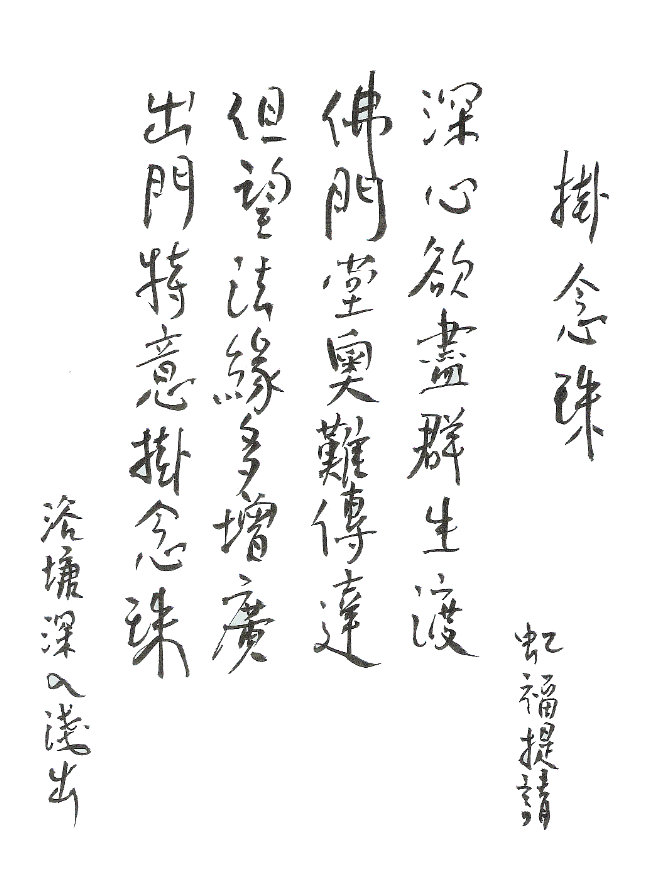 掛念珠
虹福提請
深心欲盡群生渡
佛門堂奧難傳達
但望法緣多增廣
出門特意掛念珠
浴塘深入淺出